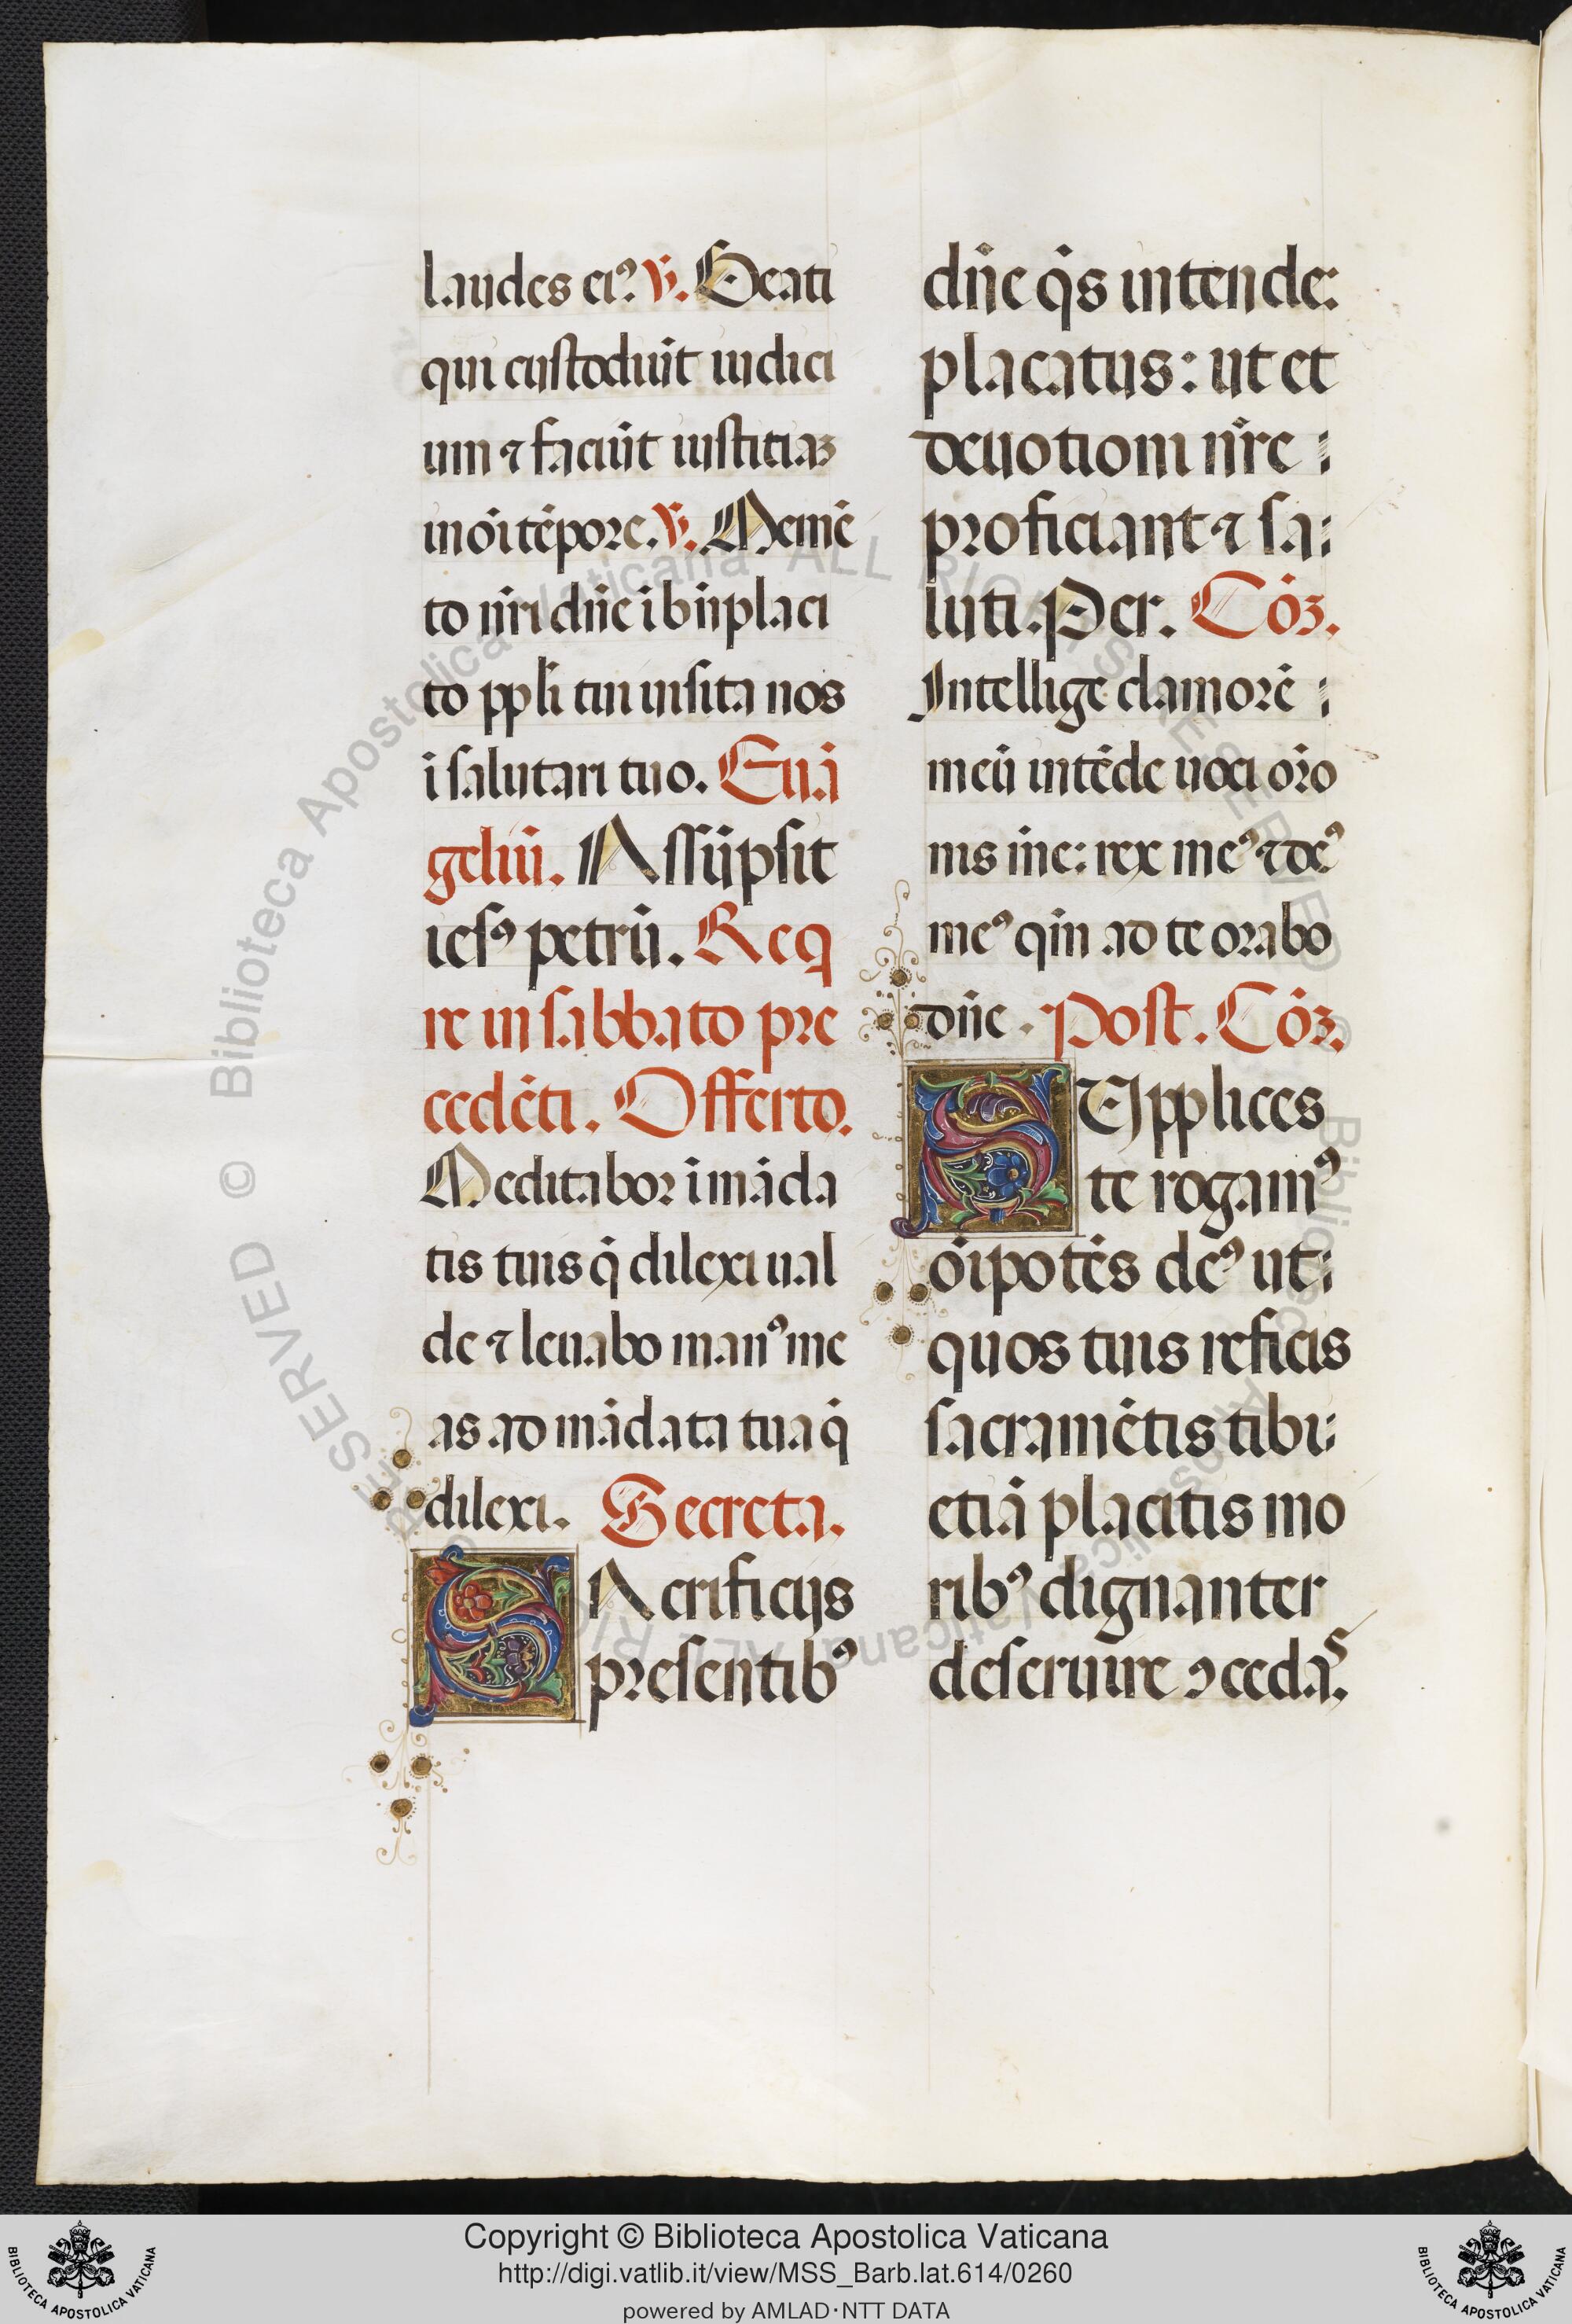 laudes ei⁹. ℣. Beati
qui custodiūt iudici
um ⁊ faciūt iustitiaꝫ
in oī tēpore. ℣. Memē
to nr̄i dn̄e ī bn̄placi
to ppl̄i tui uisita nos
ī salutari tuo. Euā
geliū. Assūpsit
ies⁹ petrū. Req
re in sabbato pre
cedēti. Offerto.
Meditabor ī māda
tis tuis q̄ dilexi ual
de ⁊ leuabo man⁹ me
as ad mādata tua q̄
dilexi. Secreta.
SAcrificijs
presentib⁹
dn̄e q̄s intende:
placatus: ut et
deuotioni nr̄e
proficiant ⁊ sa
luti. Per. Cōꝫ.
Intellige clamorē
meū intēde uoci orō
nis me: rex me⁹ ⁊ de⁹
me⁹ qm̄ ad te orabo
dn̄e. Post. Cōꝫ.
SUpplices
te rogam⁹
oīpotēs de⁹ ut
quos tuis reficis
sacramētis tibi
etiā placitis mo
rib⁹ dignanter
deseruire ꝯcedās.
© Biblioteca Apostolica Vaticana ALL RIGHTS RESERVED
Copyright © Biblioteca Apostolica Vaticana
http://digi.vatlib.it/view/MSS_Barb.lat.614/0260
powered by AMLAD·NTT DATA
BIBLIOTECA APOSTOLICA VATICANA
BIBLIOTECA APOSTOLICA VATICANA